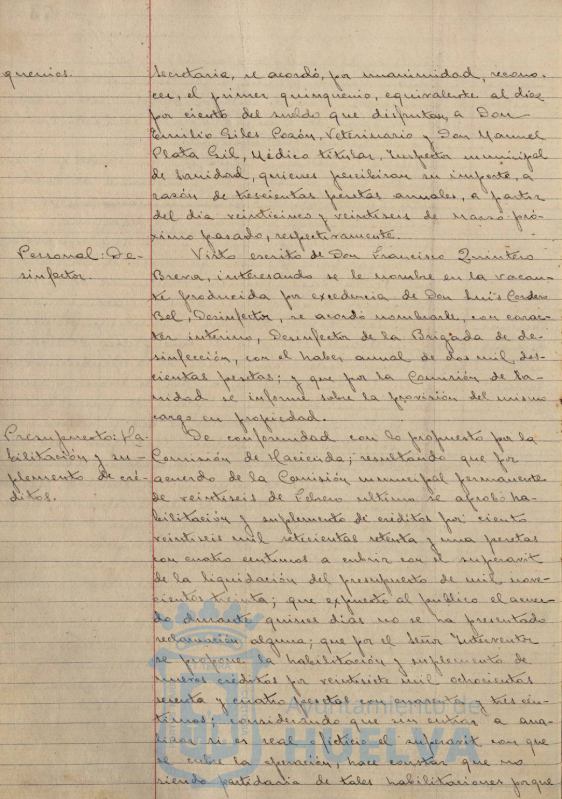 quenios.
Secretaria, se acordó, por unanimidad, recono-
cer, el primer quinquenio, equivalente al diez
por ciento del sueldo que disfrutan, a Don
Emilio Giles Pozón, Veterinario y Don Manuel
Plata Gil, Médico titular, Inspector municipal
de Sanidad, quienes percibiran su importe, a
razón de trescientas pesetas anuales, a partir
del dia veinticinco y veintiseis de Marzo pró-
ximo pasado, respectivamente.
Personal: De-
sinfector.
Visto escrito de Don Francisco Quintero
Breva, interesando se le nombre en la vacan-
te producida por excedencia de Don Luis Cordero
Bel, Desinfector, se acordó nombrarle, con carac-
ter interino, Desinfector de la Brigada de de-
sinfección, con el haber anual de dos mil dos-
cientas pesetas; y que por la Comisión de Sa-
nidad se informe sobre la provisión del mismo
cargo en propiedad.
Presupuesto: Ha-
bilitación y su-
plemento de cré-
ditos.
De conformidad con lo propuesto por la
Comisión de Hacienda; resultando que por
acuerdo de la Comisión municipal permanente
de veintiseis de Febrero ultimo se aprobó ha-
bilitación y suplemento de créditos por ciento
veintiseis mil setecientas setenta y una pesetas
con cuatro centimos a cubrir con el superavit
de la liquidación del presupuesto de mil nove-
cientos treinta; que expuesto al publico el acuer-
do durante quince dias no se ha presentado
reclamación alguna; que por el Señor Interventor
se propone la habilitación y suplemento de
nuevos créditos por veintisiete mil ochocientas
setenta y cuatro pesetas con cuarenta y tres cén-
timos; considerando que sin entrar a ana-
lizar si es real o ficticio el superavit con que
se cubre la operación, hace constar que no
siendo partidaria de tales habilitaciones porque
Ayuntamiento de
HUELVA